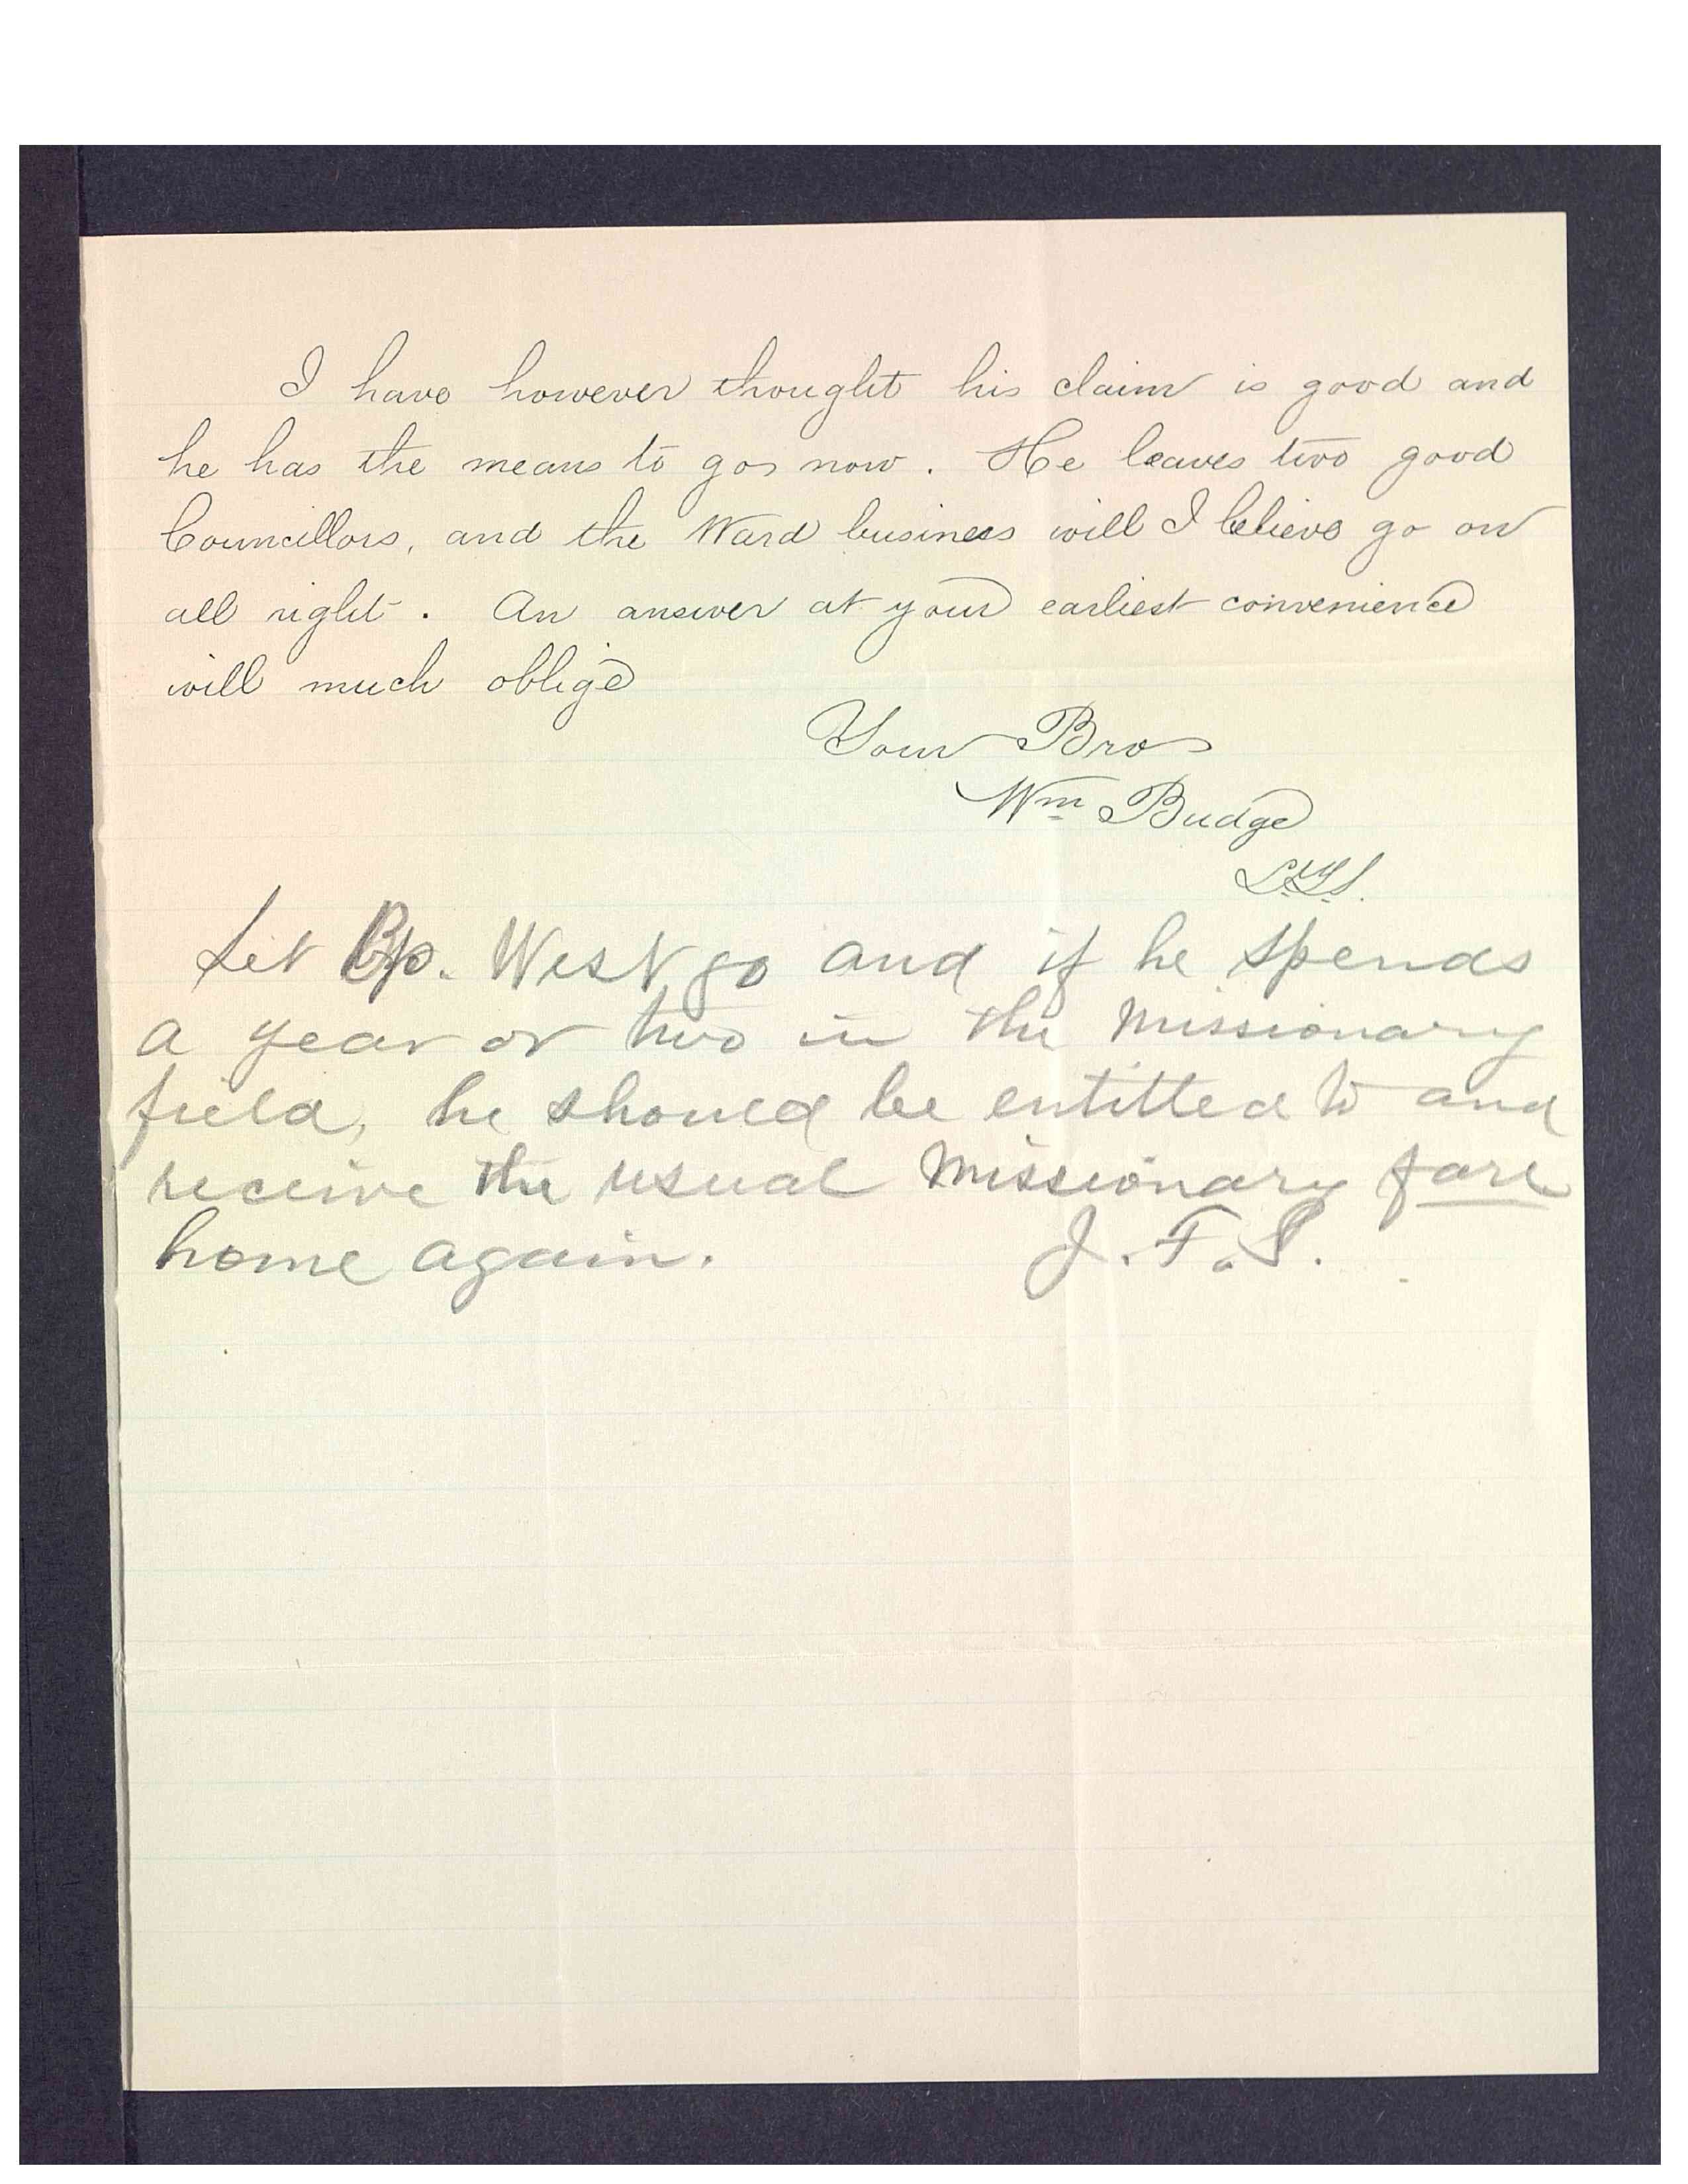 I have however thought his claim is good and
he has the means to go now. He leaves two good
Councillors, and the Ward business will I believe go on
all right. An answer at your earliest convenience
will much oblige
Your Bro
Wm Budge
Let Bp. West go and if he spends
a year or two in the missionary
field, he should be entitled to and
receive the usual missionary fare
home again. J. F. S.